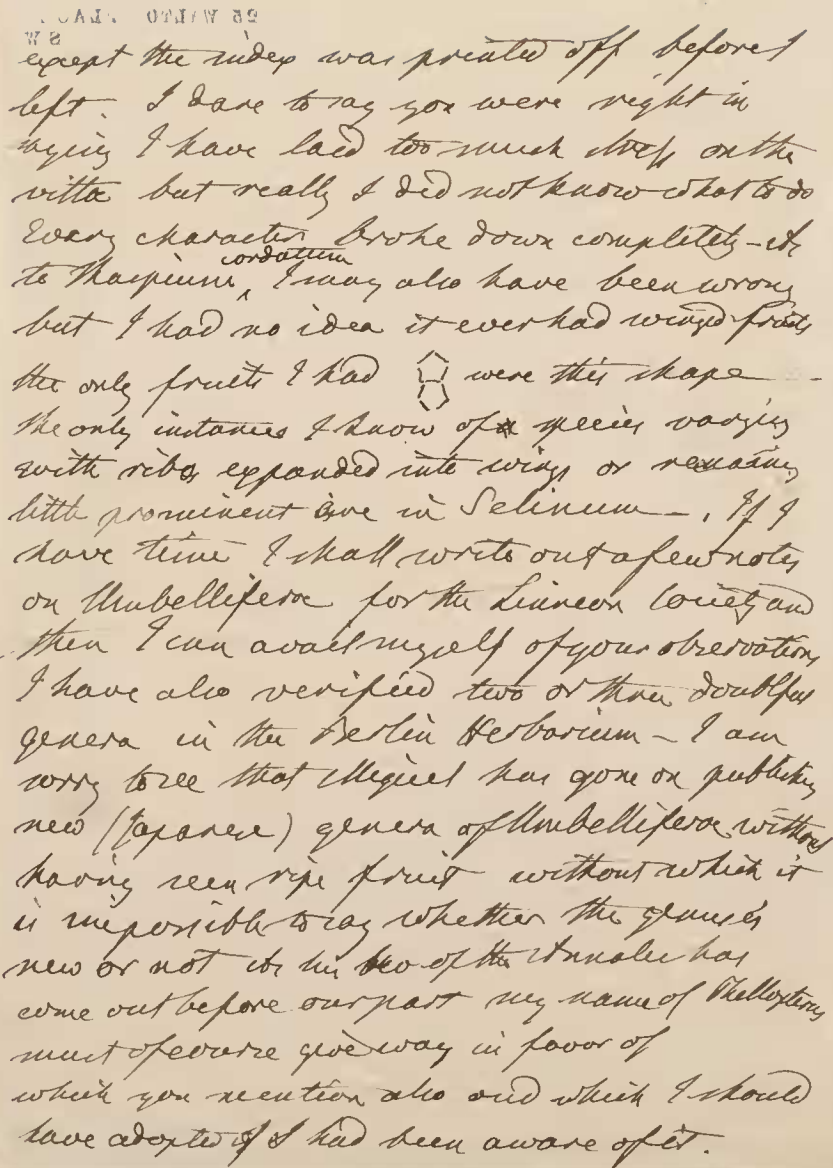 25 WALTO PLA
S W
except the index was printed off before I
left. I dare to say you were right in
saying I have laid too much stress on the
vittæ but really I did not know what to do
Every character broke down completely – as
to Thaspium cordatum I may also have been wrong
but I had no idea it ever had winged fruits
the only fruits I had were this shape –
the only instances I know of species varying
with ribs expanded into wings or remaining
little prominent are in Selinum –. If I
have time I shall write out a few notes
on Umbelliferæ for the Linnean Society and
then I can avail myself of your observations
I have also verified two or three doubtful
genera in the Berlin Herbarium – I am
sorry to see that Miquel has gone on publishing
new (Japanese) genera of Umbelliferæ without
having seen ripe fruit without which it
is impossible to say whether the genus is
new or not as his of the Annales has
come out before our part my name of Phellopterus
must of course give way in favor of
which you mention also and which I should
have adopted if I had been aware of it.